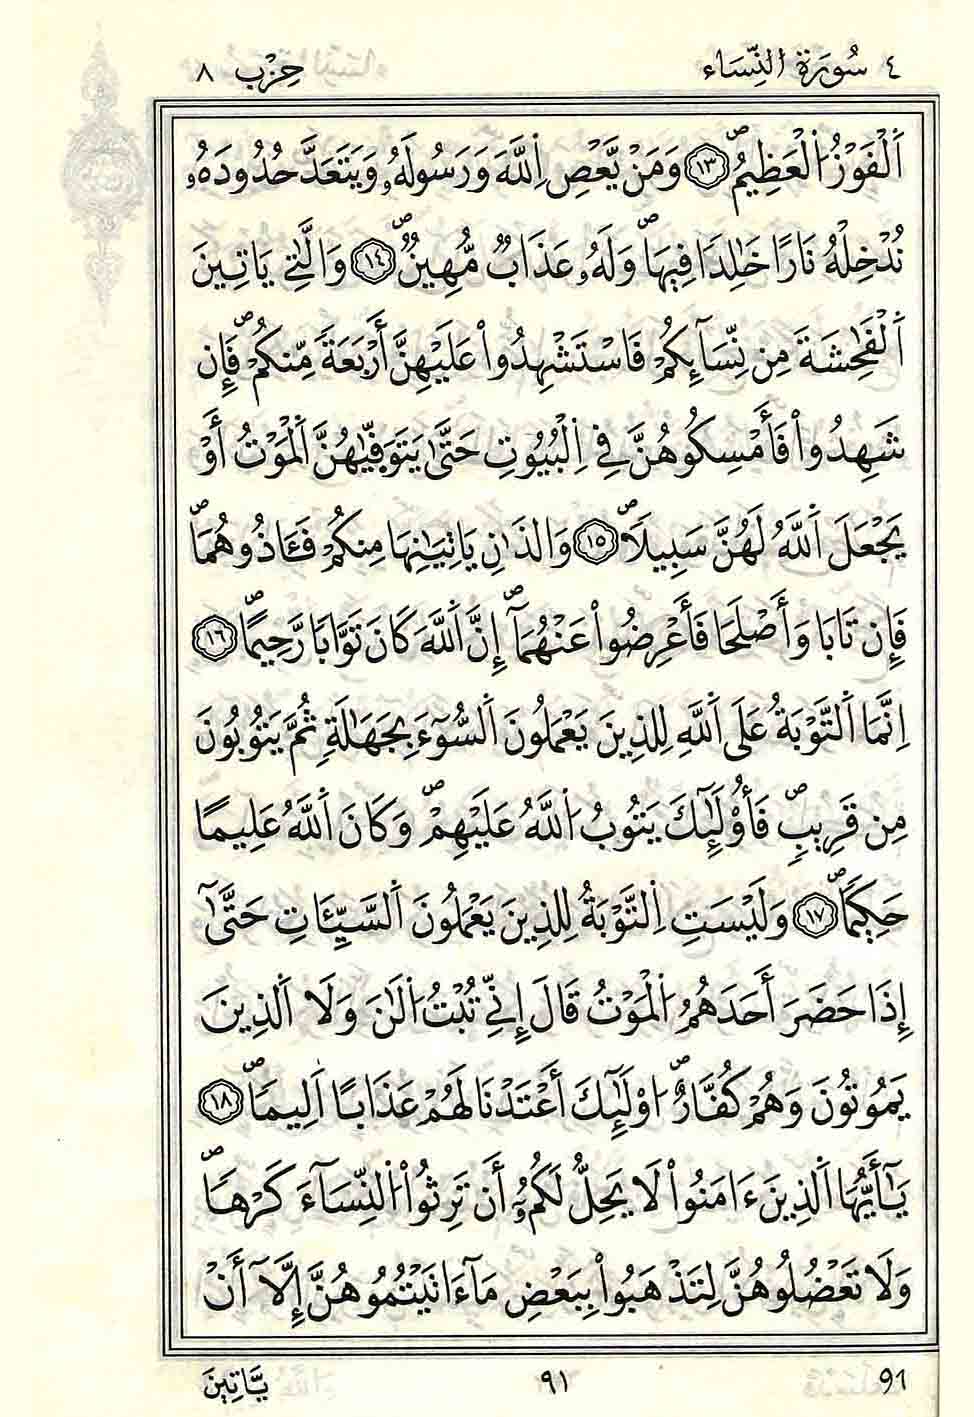 ٤ سُورَةُ النِّسَاء حِزْب ٨
اَ۬لْفَوْزُ اُ۬لْعَظِيمُۖ ١٣ وَمَنْ يَّعْصِ اِ۬للَّهَ وَرَسُولَهُۥ وَيَتَعَدَّ حُدُودَهُۥ
نُدْخِلْهُ نَارًا خَٰلِدًا فِيهَاۖ وَلَهُۥ عَذَابٌ مُّهِينٌۖ ١٤ وَالَّٰتِے يَاتِينَ
اَ۬لْفَٰحِشَةَ مِن نِّسَآئِكُمْ فَاسْتَشْهِدُواْ عَلَيْهِنَّ أَرْبَعَةً مِّنكُمْۖ فَإِن
شَهِدُواْ فَأَمْسِكُوهُنَّ فِے اِ۬لْبُيُوتِ حَتَّىٰ يَتَوَفّ۪يٰهُنَّ اَ۬لْمَوْتُ أَوْ
يَجْعَلَ اَ۬للَّهُ لَهُنَّ سَبِيلًاۖ ١٥ وَالذَٰنِ يَاتِيَٰنِهَا مِنكُمْ فَـَٔاذُوهُمَاۖ
فَإِن تَابَا وَأَصْلَحَا فَأَعْرِضُواْ عَنْهُمَآۖ إِنَّ اَ۬للَّهَ كَانَ تَوَّابًا رَّحِيمًاۖ ١٦
اِنَّمَا اَ۬لتَّوْبَةُ عَلَى اَ۬للَّهِ لِلذِينَ يَعْمَلُونَ اَ۬لسُّوٓءَ بِجَهَٰلَةٍ ثُمَّ يَتُوبُونَ
مِن قَرِيبٍۖ فَأُوْلَٰٓئِكَ يَتُوبُ اُ۬للَّهُ عَلَيْهِمْۖ وَكَانَ اَ۬للَّهُ عَلِيمًا
حَكِيمًاۖ ١٧ وَلَيْسَتِ اِ۬لتَّوْبَةُ لِلذِينَ يَعْمَلُونَ اَ۬لسَّيِّـَٔاتِ حَتَّىٰٓ
إِذَا حَضَرَ أَحَدَهُمُ اُ۬لْمَوْتُ قَالَ إِنِّے تُبْتُ اُ۬لَٰنَ وَلَا اَ۬لذِينَ
يَمُوتُونَ وَهُمْ كُفَّارٌۖ اُوْلَٰٓئِكَ أَعْتَدْنَا لَهُمْ عَذَابًا اَلِيمًاۖ ١٨
يَٰٓأَيُّهَا اَ۬لذِينَ ءَامَنُواْ لَا يَحِلُّ لَكُمُۥٓ أَن تَرِثُواْ اُ۬لنِّسَآءَ كَرْهًاۖ
وَلَا تَعْضُلُوهُنَّ لِتَذْهَبُواْ بِبَعْضِ مَآ ءَاتَيْتُمُوهُنَّ إِلَّآ أَنْ
91 ٩١ يَّاتِينَ